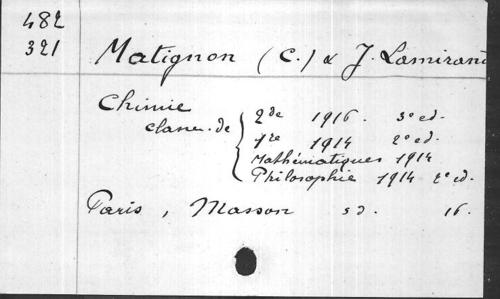 482
321
Matignon (C.) & J. Lamirand
Chimie
classe de { 2de 1916. 3e ed.
1re 1914 2e ed.
Mathématiques 1914
Philosophie 1914 2e ed.
Paris, Masson sd. 16.